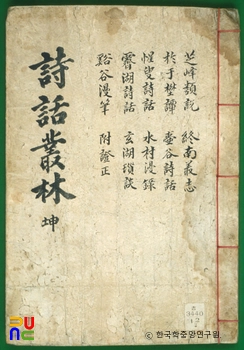 芝峰類說 終南叢志
於于埜譚 壺谷詩話
惺叟詩話 水村漫錄
霽湖詩話 玄湖瑣談
谿谷漫筆 附證正
詩話叢林 坤
3440
ⓒ 한국학중앙연구원